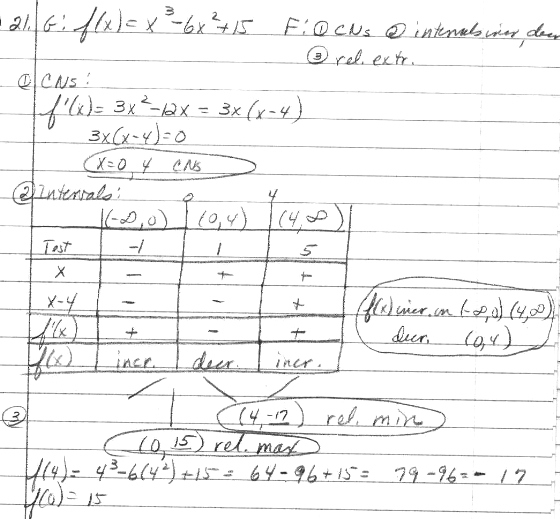 21. G: f(x) = x³-6x²+15 F: ① CNs ② intervals incr, decr
③ rel. extr.
① CNs:
f'(x) = 3x²-12x = 3x(x-4)
3x(x-4)=0
x=0, 4 CNs
② Intervals: 0 4
(-∞,0) (0,4) (4,∞)
Test -1 1 5
x - + +
x-4 - - +
f'(x) + - +
f(x) incr. decr. incr.
f(x) incr. on (-∞,0) (4,∞)
decr. (0,4)
(4,-17) rel. min
③
(0, 15) rel. max
f(4) = 4³-6(4²)+15 = 64-96+15 = 79-96=-17
f(0) = 15